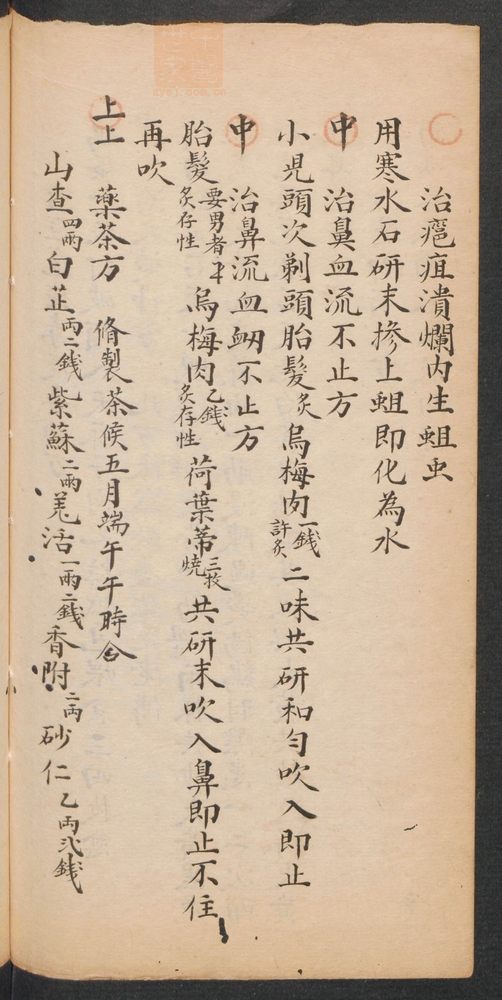 治瘡疽潰爛內生蛆虫
用寒水石研末摻上蛆即化為水
中 治鼻血流不止方
小児頭次剃頭胎髮炙烏梅肉一錢許炙二味共研和勻吹入即止
中 治鼻流血衂不止方
胎髮要男者炙存性烏梅肉乙錢炙存性荷葉蒂三枚燒共研末吹入鼻即止不住
再吹
上上 藥茶方 脩製茶候五月端午午時合
山查四兩白芷兩二錢紫蘇二兩羌活一兩二錢香附二両砂仁乙両弍錢